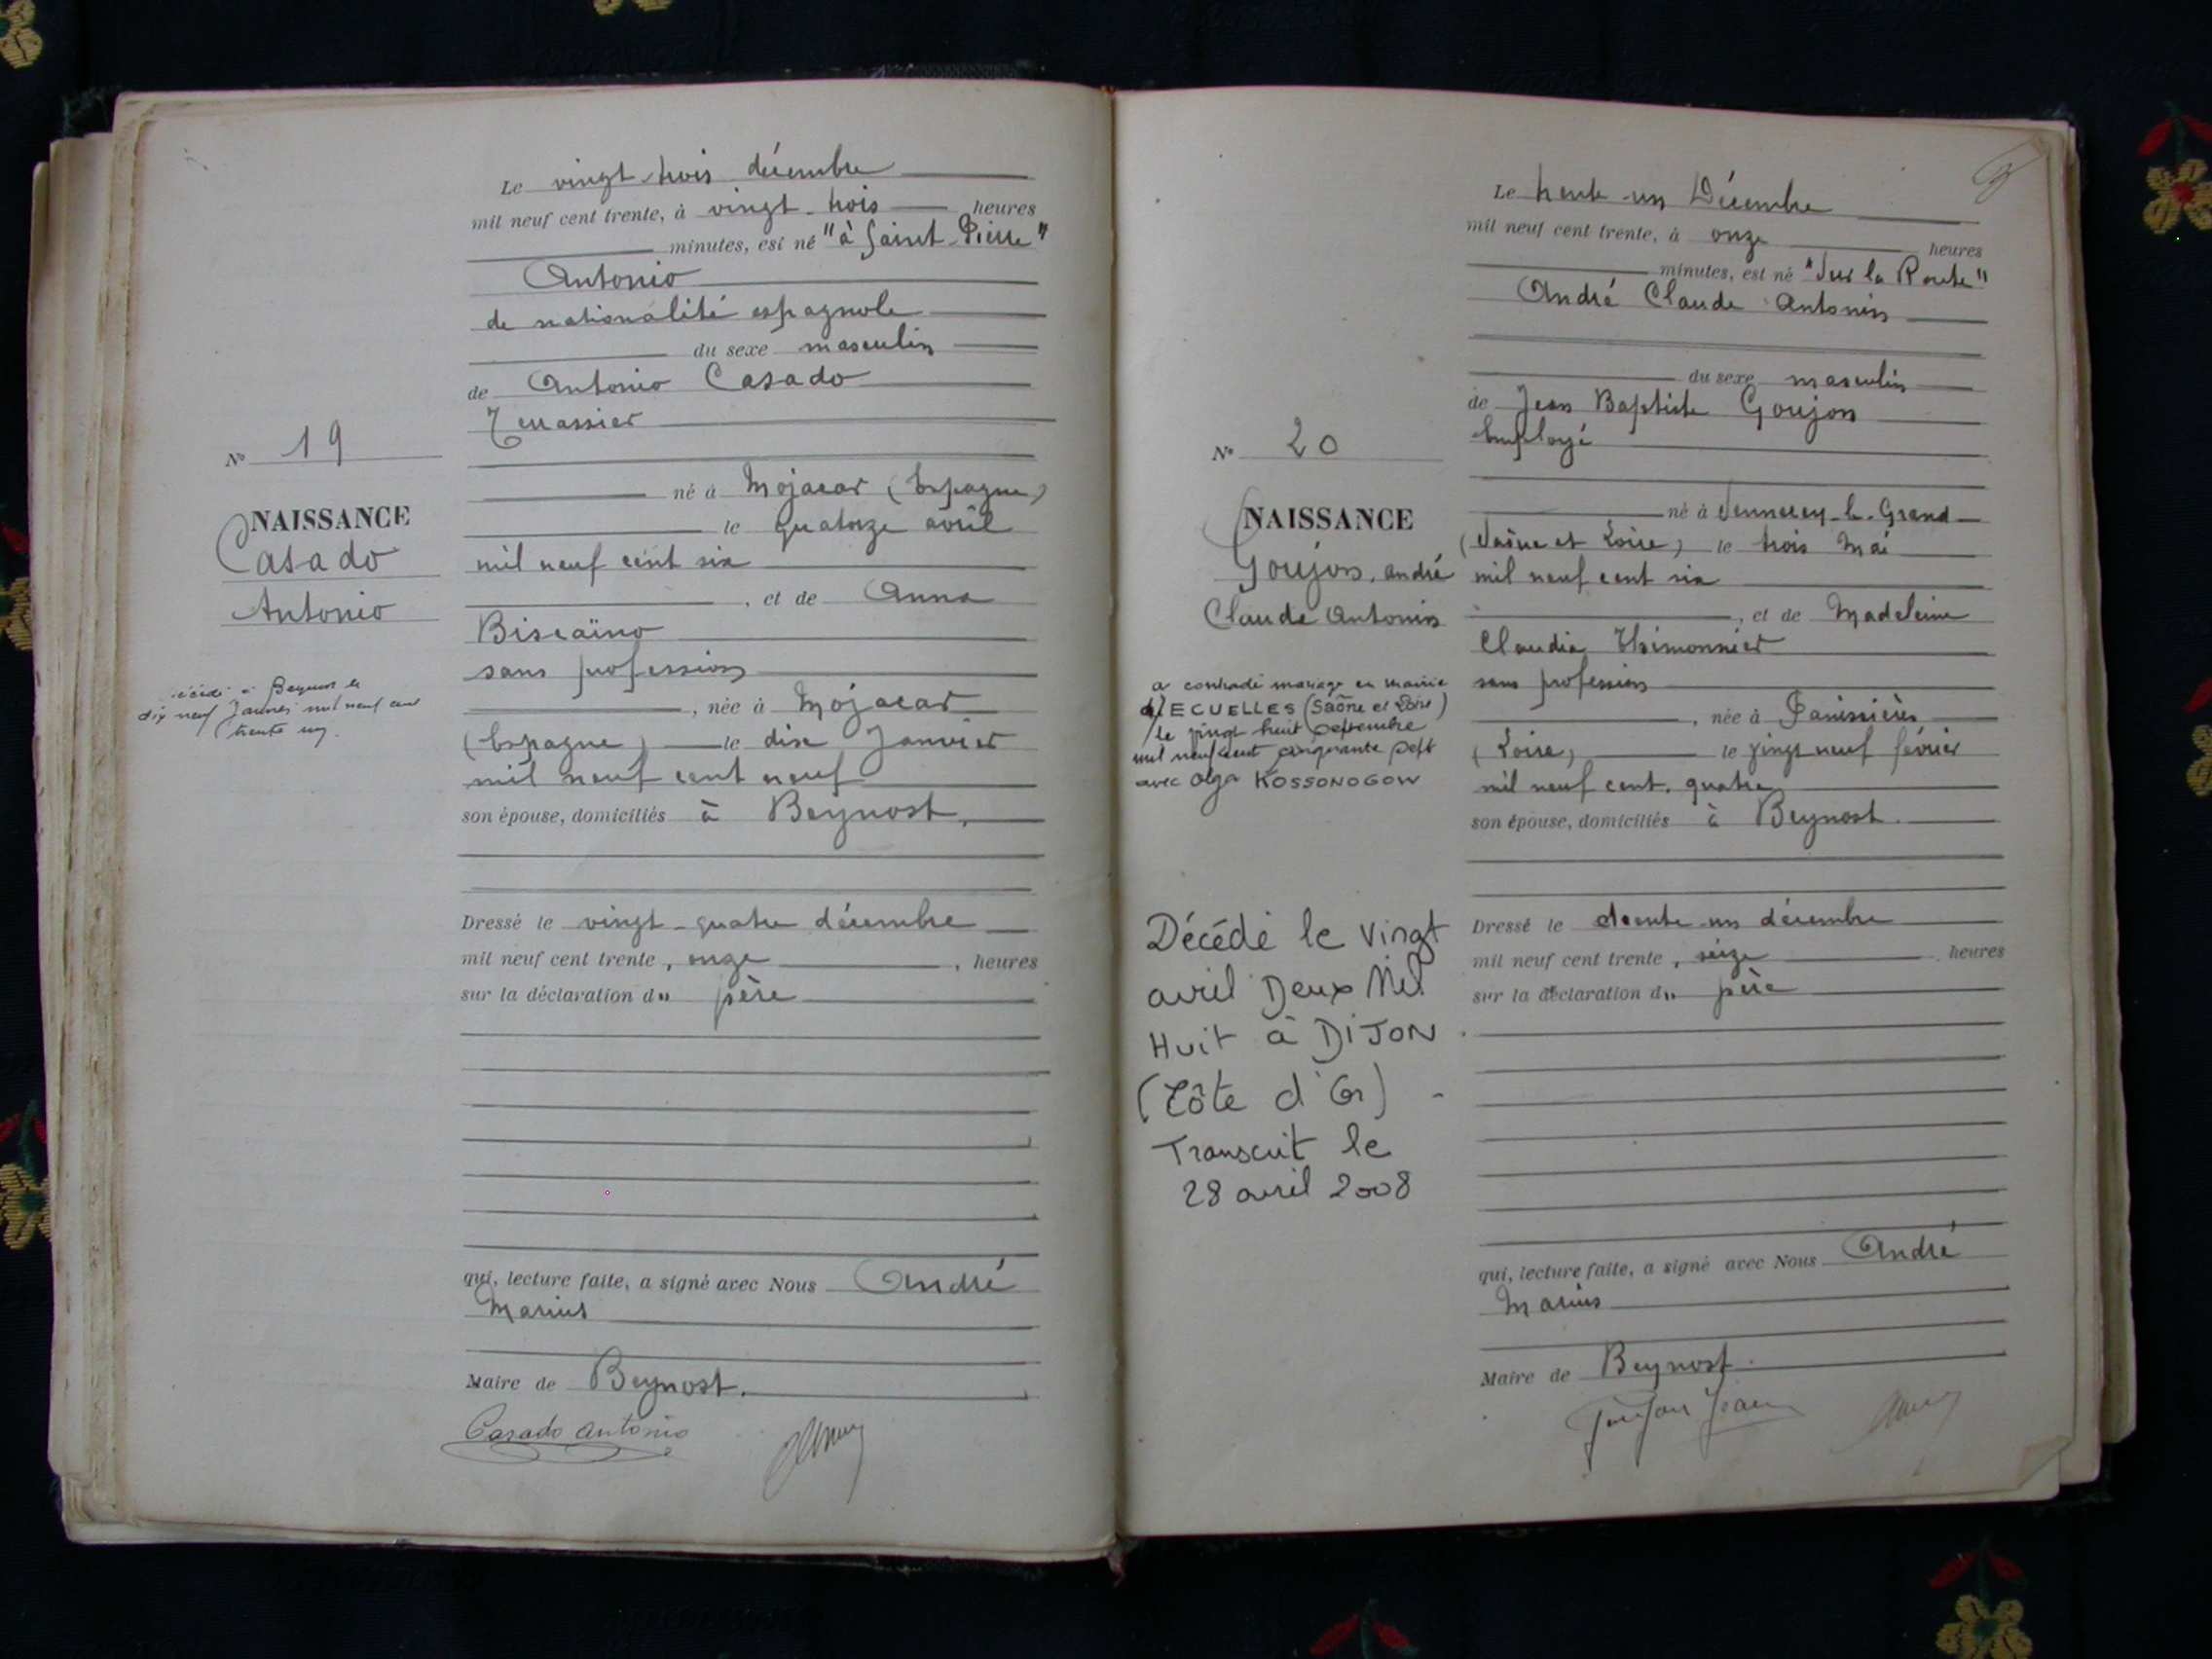 Le vingt-trois décembre
mil neuf cent trente, à vingt-trois heures
minutes, est né "à Saint-Pierre"
Antonio
de nationalité espagnole
du sexe masculin
de Antonio Casado
Terrassier
né à Mojacar (Espagne)
le quatorze avril
mil neuf cent six
, et de Anna
Biscaïno
sans profession
, née à Mojacar
(Espagne) le dix Janvier
mil neuf cent neuf
son épouse, domiciliés à Beynost.
Dressé le vingt-quatre décembre
mil neuf cent trente, onze, heures
sur la déclaration du père
qui, lecture faite, a signé avec Nous André
Marius
Maire de Beynost.
Casado Antonio
N° 19
NAISSANCE
Casado
Antonio
décédé à Beynost le
dix neuf Janvier mil neuf cent
trente un.
Le trente-un Décembre
mil neuf cent trente, à onze heures
minutes, est né "Sur la Route"
André Claude Antonin
du sexe masculin
de Jean Baptiste Goujon
Employé
né à Sennecey-le-Grand
(Saône et Loire) le trois Mai
mil neuf cent six
, et de Madeleine
Claudia Thimonnier
sans profession
, née à Panissières
(Loire) le vingt neuf février
mil neuf cent quatre
son épouse, domiciliés à Beynost.
Dressé le trente-un décembre
mil neuf cent trente, seize heures
sur la déclaration du père
qui, lecture faite, a signé avec Nous André
Marius
Maire de Beynost.
Goujon Jean
N° 20
NAISSANCE
Goujon, André
Claude Antonin
a contracté mariage en mairie
d'ECUELLES (Saône et Loire)
le vingt huit septembre
mil neuf cent cinquante sept
avec Olga KOSSONOGOW
Décédé le vingt
avril Deux Mil
Huit à DIJON
(Côte d'Or) -
Transcrit le
28 avril 2008